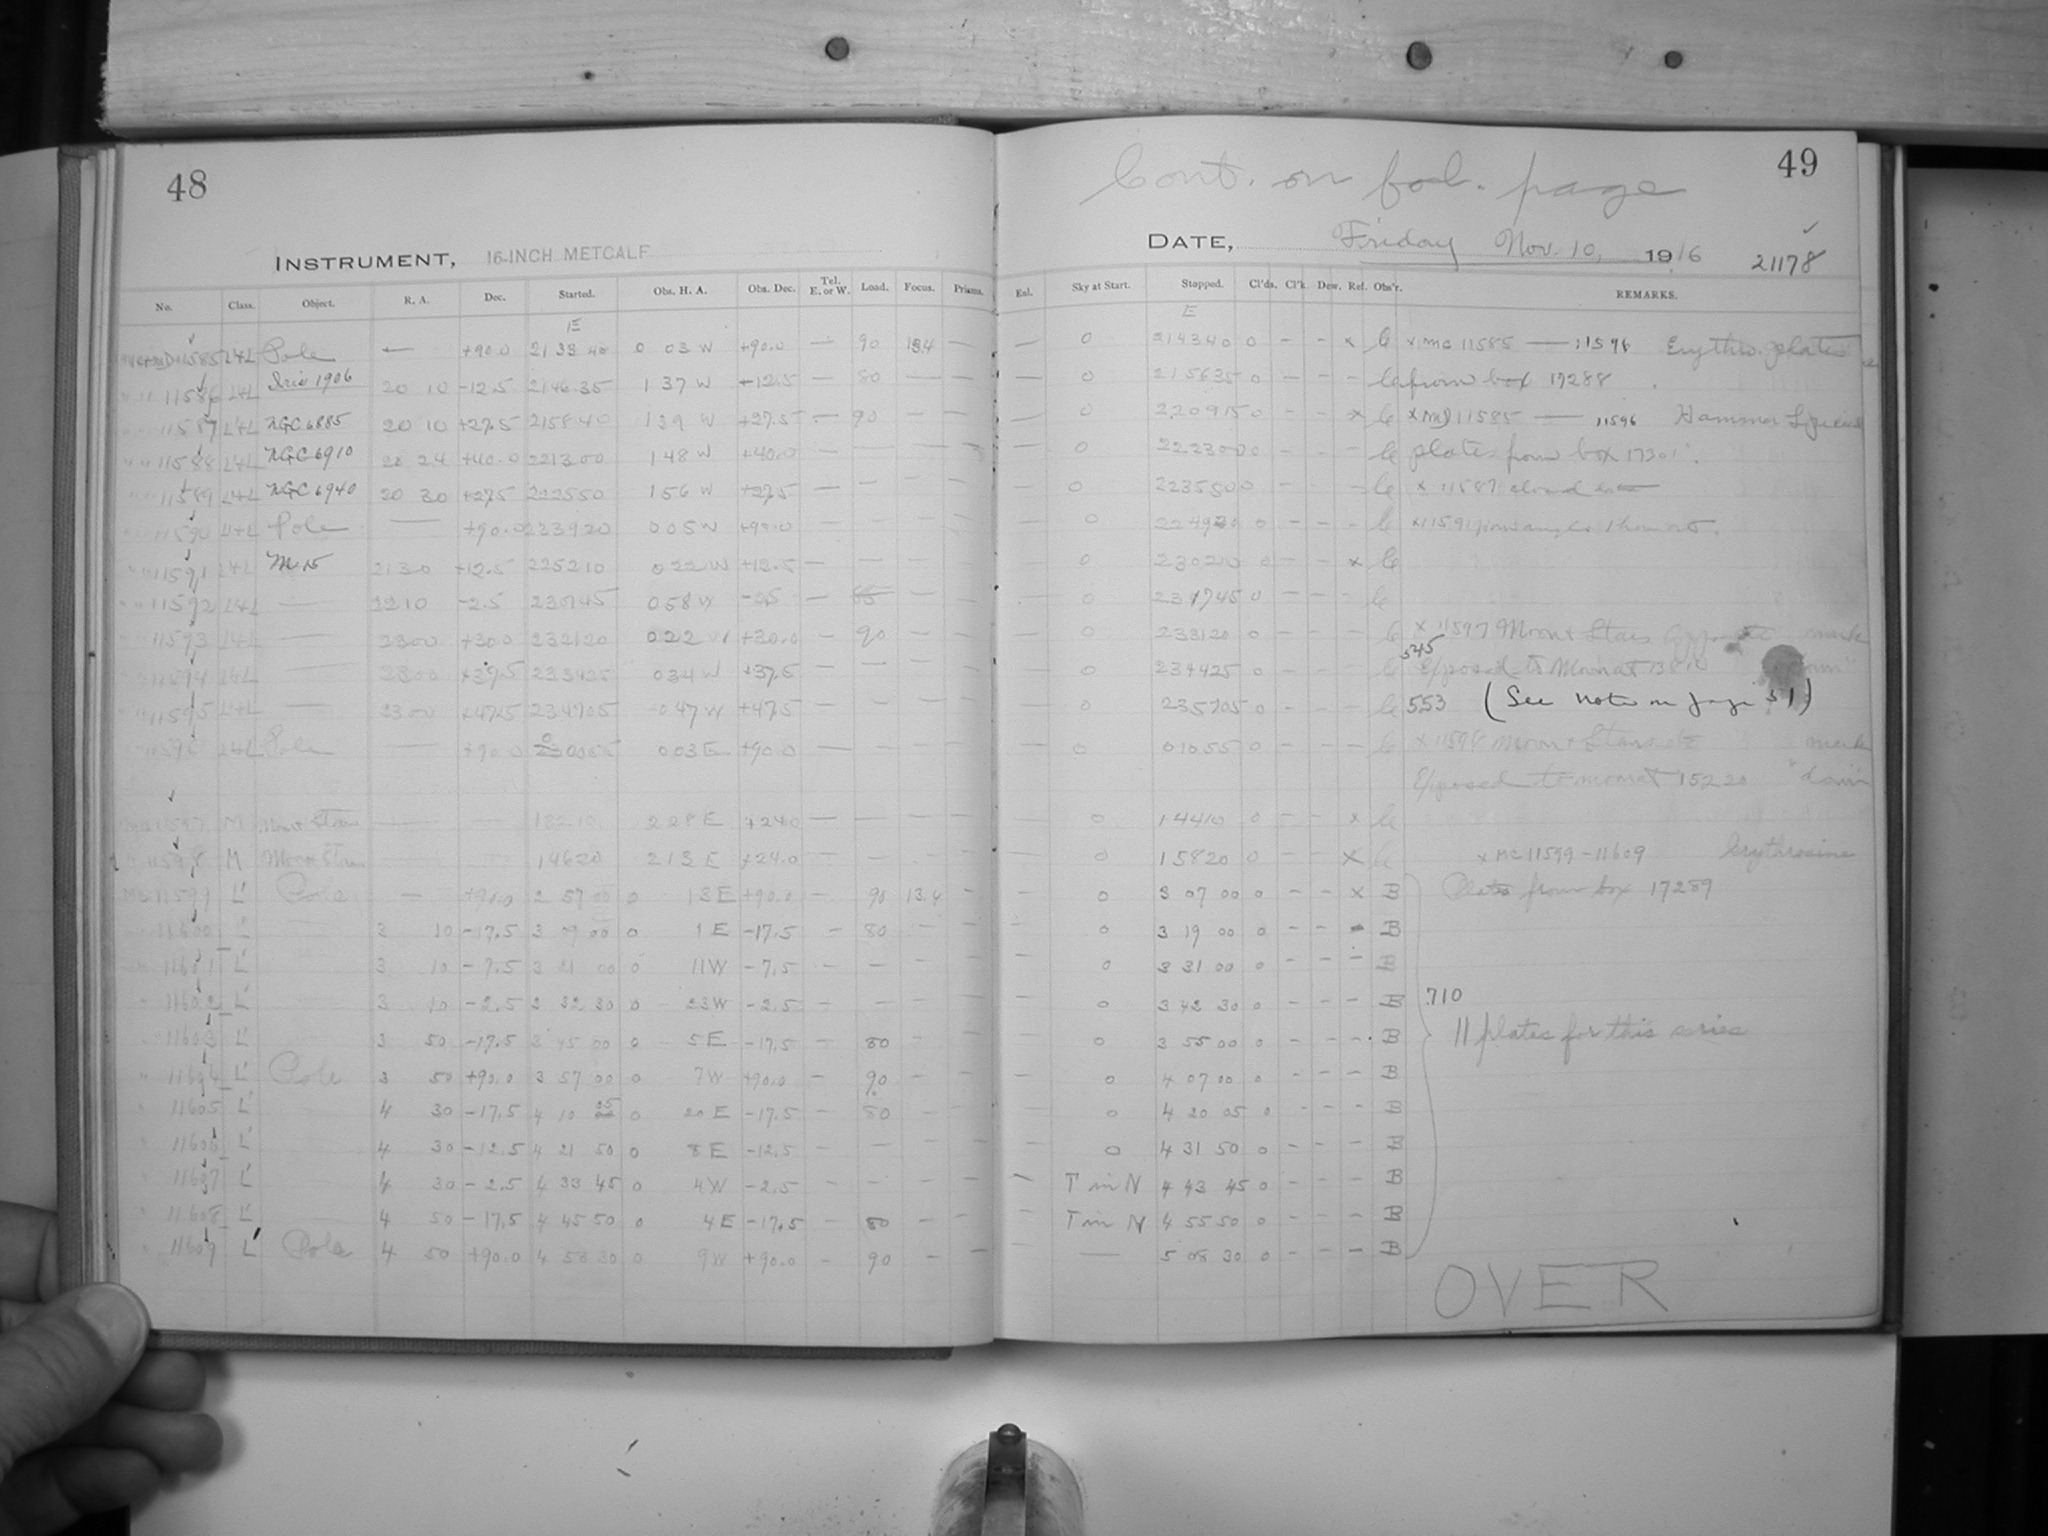 48
INSTRUMENT, 16-INCH METCALF
No. Class. Object. R. A. Dec. Started. Obs. H. A. Obs. Dec. Tel. E. or W. Load. Focus. Prisms.
E
11585 L+L Pole — +90.0 21 33 40 0 03 W +90.0 — 90 13.4 —
" " 11586 L+L Iris 1906 20 10 -12.5 21 46 35 1 37 W -12.5 — 80 — —
" " 11587 L+L NGC 6885 20 10 +27.5 21 58 40 1 39 W +27.5 — 90 — —
" " 11588 L+L NGC 6910 20 24 +40.0 22 13 00 1 48 W +40.0 — — — —
" " 11589 L+L NGC 6940 20 30 +27.5 22 25 50 1 56 W +27.5 — — — —
" " 11590 L+L Pole — +90.0 22 39 20 0 05 W +90.0 — — — —
" " 11591 L+L M. 15 21 30 +12.5 22 52 10 0 22 W +12.5 — — — —
" " 11592 L+L — 22 10 -2.5 23 07 45 0 58 W -2.5 — —
" " 11593 L+L — 23 00 +30.0 23 21 20 0 22 W +30.0 — 90 — —
" " 11594 L+L — 23 00 +37.5 23 34 25 0 34 W +37.5 — — — —
" " 11595 L+L — 23 00 +47.5 23 47 05 0 47 W +47.5 — — — —
11596 L+L Pole — +90.0 0 00 55 0 03 E +90.0 — — — —
11597 M Moon + Stars — — 1 32 10 2 28 E +24.0 — — — —
11598 M Moon + Stars 1 46 20 2 13 E +24.0 — — — —
MC 11599 L' Pole — +90.0 2 57 00 0 13 E +90.0 — 90 13.4 —
" 11600 L' 3 10 -17.5 3 09 00 0 1 E -17.5 — 80 — —
" 11601 L' 3 10 -7.5 3 21 00 0 11 W -7.5 — — — —
" 11602 L' 3 10 -2.5 3 32 30 0 23 W -2.5 — — — —
" 11603 L' 3 50 -17.5 3 45 00 0 5 E -17.5 — 80 — —
" 11604 L' Pole 3 50 +90.0 3 57 00 0 7 W +90.0 — 90 — —
" 11605 L' 4 30 -17.5 4 10 05 0 20 E -17.5 — 80 — —
" 11606 L' 4 30 -12.5 4 21 50 0 8 E -12.5 — — — —
" 11607 L' 4 30 -2.5 4 33 45 0 4 W -2.5 — — — —
" 11608 L' 4 50 -17.5 4 45 50 0 4 E -17.5 — 80 — —
" 11609 L' Pole 4 50 +90.0 4 58 30 0 9 W +90.0 — 90 — —
49
Cont. on fol. page
DATE, Friday Nov. 10, 1916 21178
Enl. Sky at Start. Stopped. Cl'ds. Cl'k. Dew. Ref. Obs'r. REMARKS.
E
— 0 21 43 40 0 – – x C x MC 11585 — 11598 Erythro. plates
— 0 21 56 35 0 – – – C from box 17288
— 0 22 09 15 0 – – x C x MD 11585 — 11596 Hammer Special
— 0 22 23 00 0 – – – C plates from box 17301.
— 0 22 35 50 0 – – – C x 11587 closed
— 0 22 49 20 0 – – – C x 11591
— 0 23 02 10 0 – – x C
— 0 23 17 45 0 – – – C
— 0 23 31 20 0 – – – C x 11597 Moon + Stars mark
— 0 23 44 25 0 – – – C 545 Exposed to Moon at "down"
— 0 23 57 05 0 – – – C 553 (See note on page 31)
— 0 0 10 55 0 – – – C x 11598 Moon + Stars mark
Exposed to moon at 15220 "down"
0 1 44 10 0 – – x C
0 1 58 20 0 – – x C x MC 11599 – 11609 Erythrosine
— 0 3 07 00 0 – – x B Plates from box 17289
— 0 3 19 00 0 – – – B
— 0 3 31 00 0 – – – B
— 0 3 42 30 0 – – – B 710
— 0 3 55 00 0 – – – B 11 plates for this series
— 0 4 07 00 0 – – – B
— 0 4 20 05 0 – – – B
— 0 4 31 50 0 – – – B
— T in N 4 43 45 0 – – – B
— T in N 4 55 50 0 – – – B
— — 5 08 30 0 – – – B
OVER